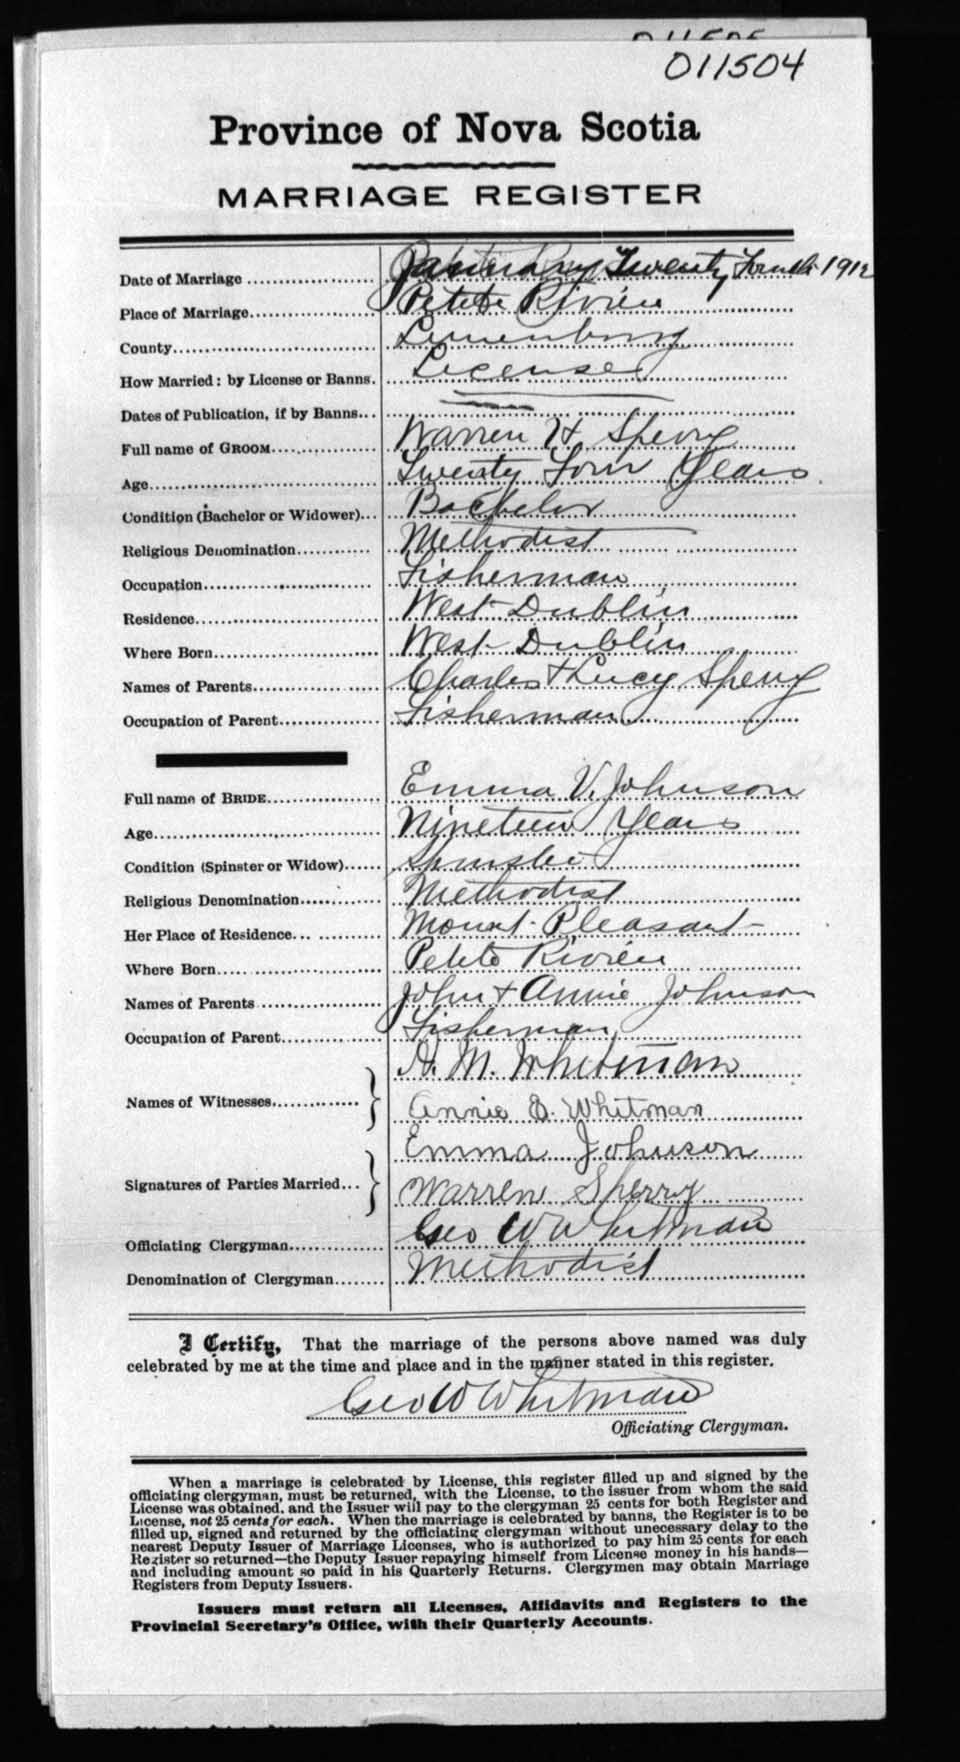 011504
Province of Nova Scotia
MARRIAGE REGISTER
Date of Marriage January Twenty Fourth 1912
Place of Marriage Petite Riviere
County Lunenburg
How Married: by License or Banns. License
Dates of Publication, if by Banns
Full name of GROOM Warren H Sperry
Age Twenty Four Years
Condition (Bachelor or Widower) Bachelor
Religious Denomination Methodist
Occupation Fisherman
Residence West Dublin
Where Born West Dublin
Names of Parents Charles + Lucy Sperry
Occupation of Parent Fisherman
Full name of BRIDE Emma V. Johnson
Age Nineteen Years
Condition (Spinster or Widow) Spinster
Religious Denomination Methodist
Her Place of Residence Mount Pleasant
Where Born Petite Riviere
Names of Parents John + Annie Johnson
Occupation of Parent Fisherman
A. M. Whitman
Names of Witnesses
Annie E. Whitman
Emma Johnson
Signatures of Parties Married
Warren Sperry
Officiating Clergyman Geo W Whitman
Denomination of Clergyman Methodist
I Certify, That the marriage of the persons above named was duly
celebrated by me at the time and place and in the manner stated in this register.
Geo W Whitman
Officiating Clergyman.
When a marriage is celebrated by License, this register filled up and signed by the
officiating clergyman, must be returned, with the License, to the issuer from whom the said
License was obtained, and the Issuer will pay to the clergyman 25 cents for both Register and
License, not 25 cents for each. When the marriage is celebrated by banns, the Register is to be
filled up, signed and returned by the officiating clergyman without unecessary delay to the
nearest Deputy Issuer of Marriage Licenses, who is authorized to pay him 25 cents for each
Register so returned—the Deputy Issuer repaying himself from License money in his hands—
and including amount so paid in his Quarterly Returns. Clergymen may obtain Marriage
Registers from Deputy Issuers.
Issuers must return all Licenses, Affidavits and Registers to the
Provincial Secretary's Office, with their Quarterly Accounts.